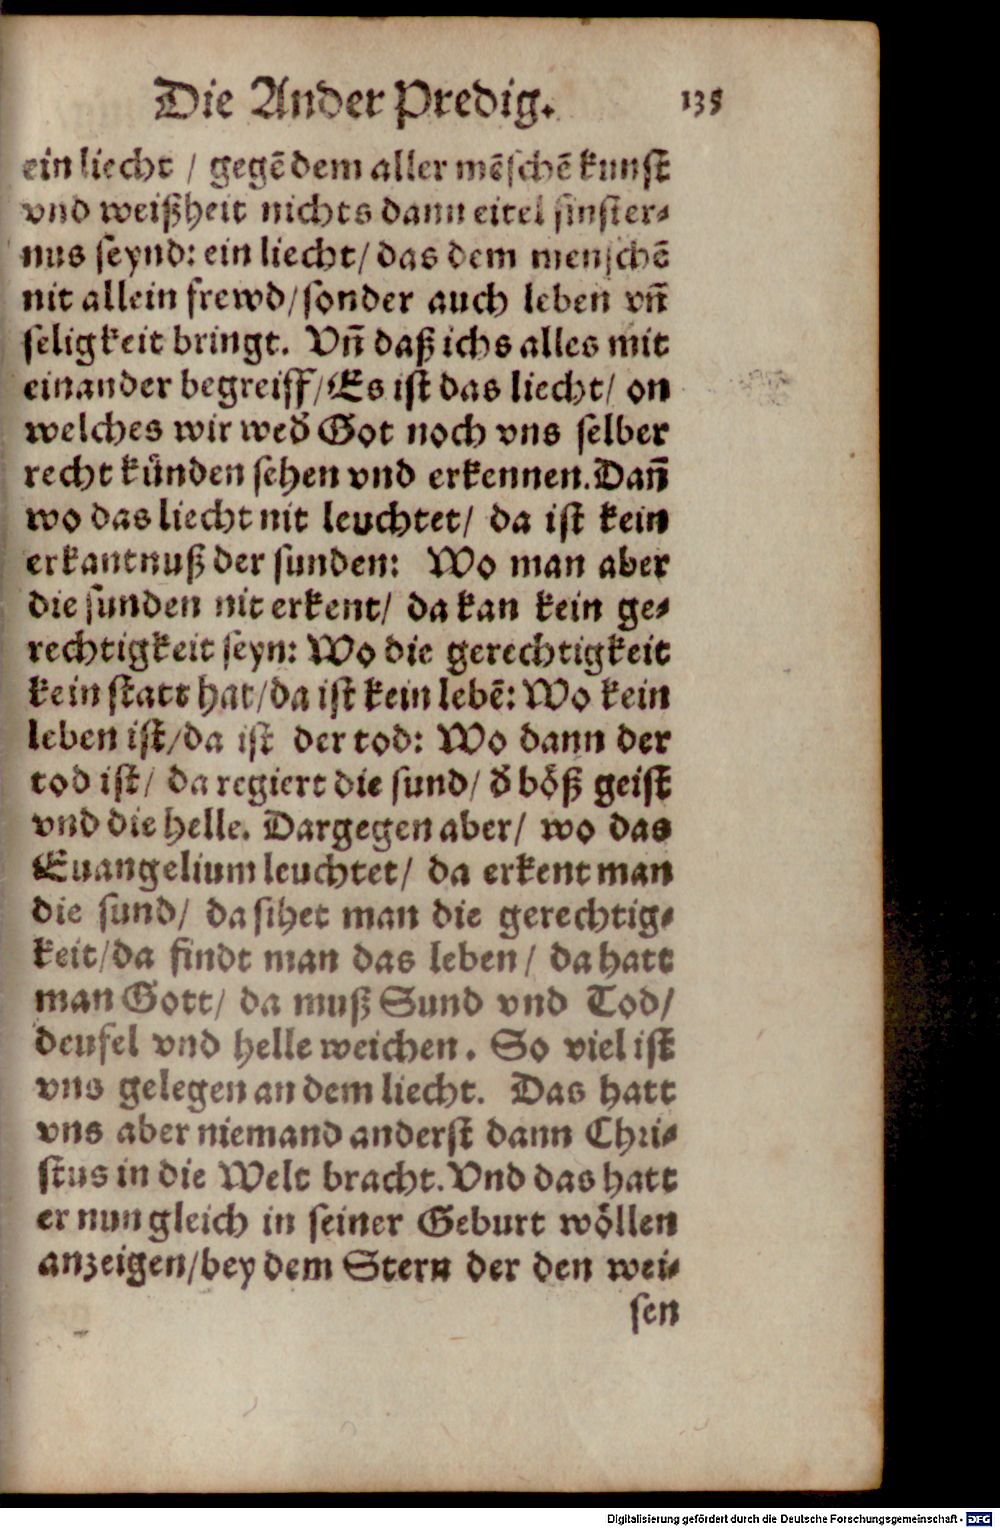 Die Ander Predig. 135
ein liecht / gegẽ dem aller mẽschẽ kunst
vnd weißheit nichts dann eitel finster-
nus seynd: ein liecht/ das dem menschẽ
nit allein frewd/sonder auch leben vñ
seligkeit bringt. Vñ daß ichs alles mit
einander begreiff/Es ist das liecht/ on
welches wir wed̄ Got noch vns selber
recht künden sehen vnd erkennen.Dañ
wo das liecht nit leuchtet/ da ist kein
erkantnuß der sunden: Wo man aber
die sunden nit erkent/ da kan kein ge-
rechtigkeit seyn: Wo die gerechtigkeit
kein statt hat/da ist kein lebẽ: Wo kein
leben ist/da ist der tod: Wo dann der
tod ist/ da regiert die sund/ d̄ böß geist
vnd die helle. Dargegen aber/ wo das
Euangelium leuchtet/ da erkent man
die sund/ da sihet man die gerechtig-
keit/da findt man das leben/ da hatt
man Gott/ da muß Sund vnd Tod/
deufel vnd helle weichen. So viel ist
vns gelegen an dem liecht. Das hatt
vns aber niemand anderst dann Chri-
stus in die Welt bracht.Vnd das hatt
er nun gleich in seiner Geburt wöllen
anzeigen/bey dem Stern der den wei-
sen
Digitalisierung gefördert durch die Deutsche Forschungsgemeinschaft - DFG